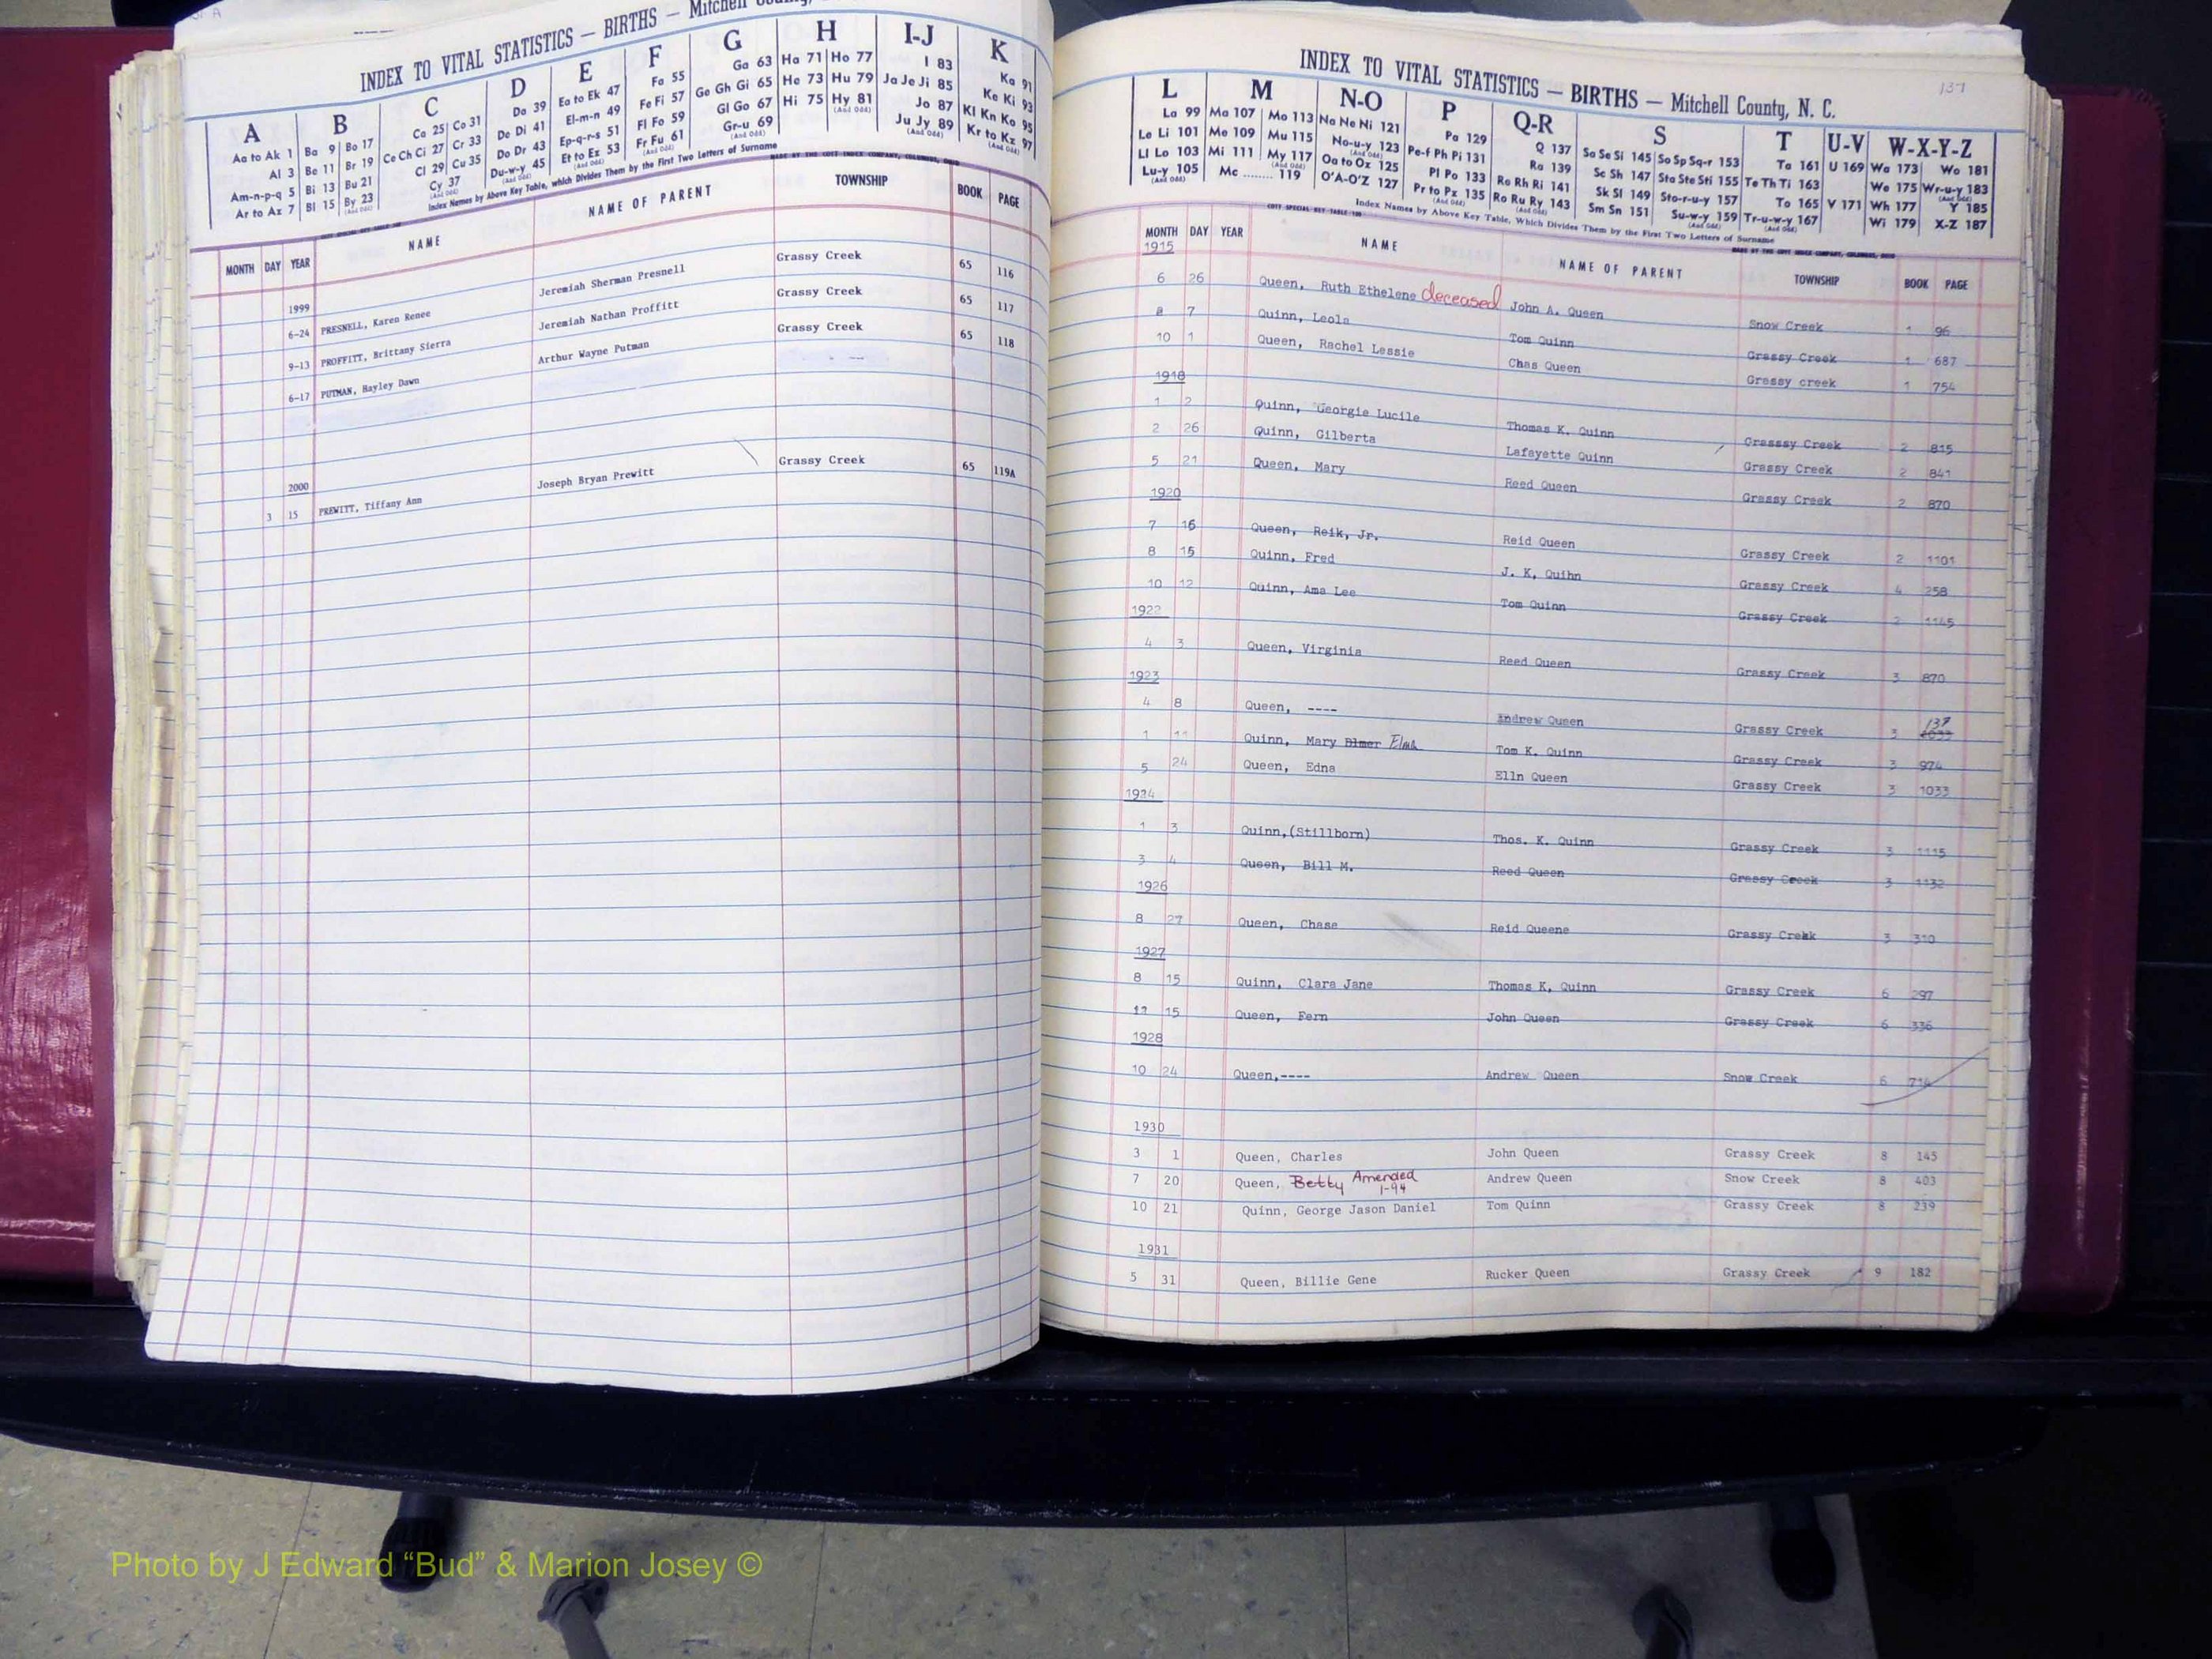 INDEX TO VITAL STATISTICS — BIRTHS — Mitchell
A B C D E F G H I-J K
Aa to Ak 1 Ba 9 Bo 17 Ca 25 Co 31 Da 39 Ea to Ek 47 Fa 55 Ga 63 Ha 71 Ho 77 I 83 Ka 91
Al 3 Be 11 Br 19 Ce Ch Ci 27 Cr 33 De Di 41 El-m-n 49 Fe Fi 57 Ge Gh Gi 65 He 73 Hu 79 Ja Je Ji 85 Ke Ki 93
Am-n-p-q 5 Bi 13 Bu 21 Cl 29 Cu 35 Do Dr 43 Ep-q-r-s 51 Fl Fo 59 Gl Go 67 Hi 75 Hy 81 Jo 87 Kl Kn Ko 95
Ar to Az 7 Bl 15 By 23 Cy 37 Du-w-y 45 Et to Ez 53 Fr Fu 61 Gr-u 69 Ju Jy 89 Kr to Kz 97
Index Names by Above Key Table, which Divides Them by the First Two Letters of Surname
MONTH DAY YEAR NAME NAME OF PARENT TOWNSHIP BOOK PAGE
1999
6-24 PRESNELL, Karen Renee Jeremiah Sherman Presnell Grassy Creek 65 116
9-13 PROFFITT, Brittany Sierra Jeremiah Nathan Proffitt Grassy Creek 65 117
6-17 PUTMAN, Hayley Dawn Arthur Wayne Putman Grassy Creek 65 118
2000
3 15 PREWITT, Tiffany Ann Joseph Bryan Prewitt Grassy Creek 65 119A
137
INDEX TO VITAL STATISTICS — BIRTHS — Mitchell County, N. C.
L M N-O P Q-R S T U-V W-X-Y-Z
La 99 Ma 107 Mo 113 Na Ne Ni 121 Pa 129 Q 137 Sa Se Si 145 So Sp Sq-r 153 Ta 161 U 169 Wa 173 Wo 181
Le Li 101 Me 109 Mu 115 No-u-y 123 Pe-f Ph Pi 131 Ra 139 Sc Sh 147 Sta Ste Sti 155 Te Th Ti 163 We 175 Wr-u-y 183
Ll Lo 103 Mi 111 My 117 Oa to Oz 125 Pl Po 133 Re Rh Ri 141 Sk Sl 149 Sto-r-u-y 157 To 165 V 171 Wh 177 Y 185
Lu-y 105 Mc ........ 119 O'A-O'Z 127 Pr to Pz 135 Ro Ru Ry 143 Sm Sn 151 Su-w-y 159 Tr-u-w-y 167 Wi 179 X-Z 187
Index Names by Above Key Table, Which Divides Them by the First Two Letters of Surname
MONTH DAY YEAR NAME NAME OF PARENT TOWNSHIP BOOK PAGE
1915
6 26 Queen, Ruth Ethelene deceased John A. Queen Snow Creek 1 96
8 7 Quinn, Leola Tom Quinn Grassy Creek 1 687
10 1 Queen, Rachel Lessie Chas Queen Grassy creek 1 754
1918
1 2 Quinn, Georgie Lucile Thomas K. Quinn Grasssy Creek 2 815
2 26 Quinn, Gilberta Lafayette Quinn Grassy Creek 2 841
5 21 Queen, Mary Reed Queen Grassy Creek 2 870
1920
7 16 Queen, Reik, Jr. Reid Queen Grassy Creek 2 1101
8 15 Quinn, Fred J. K. Quihn Grassy Creek 4 258
10 12 Quinn, Ama Lee Tom Quinn Grassy Creek 2 1145
1922
4 3 Queen, Virginia Reed Queen Grassy Creek 3 870
1923
4 8 Queen, ---- Andrew Queen Grassy Creek 3 1033 137
1 11 Quinn, Mary Elmer Elma Tom K. Quinn Grassy Creek 3 974
5 24 Queen, Edna Elln Queen Grassy Creek 3 1033
1924
1 3 Quinn,(Stillborn) Thos. K. Quinn Grassy Creek 3 1115
3 4 Queen, Bill M. Reed Queen Grassy Creek 3 1132
1926
8 27 Queen, Chase Reid Queene Grassy Crekk 3 310
1927
8 15 Quinn, Clara Jane Thomas K, Quinn Grassy Creek 6 297
12 15 Queen, Fern John Queen Grassy Creek 6 336
1928
10 24 Queen,---- Andrew Queen Snow Creek 6 714
1930
3 1 Queen, Charles John Queen Grassy Creek 8 145
7 20 Queen, Betty Amended 1-94 Andrew Queen Snow Creek 8 403
10 21 Quinn, George Jason Daniel Tom Quinn Grassy Creek 8 239
1931
5 31 Queen, Billie Gene Rucker Queen Grassy Creek 9 182
Photo by J Edward “Bud” & Marion Josey ©